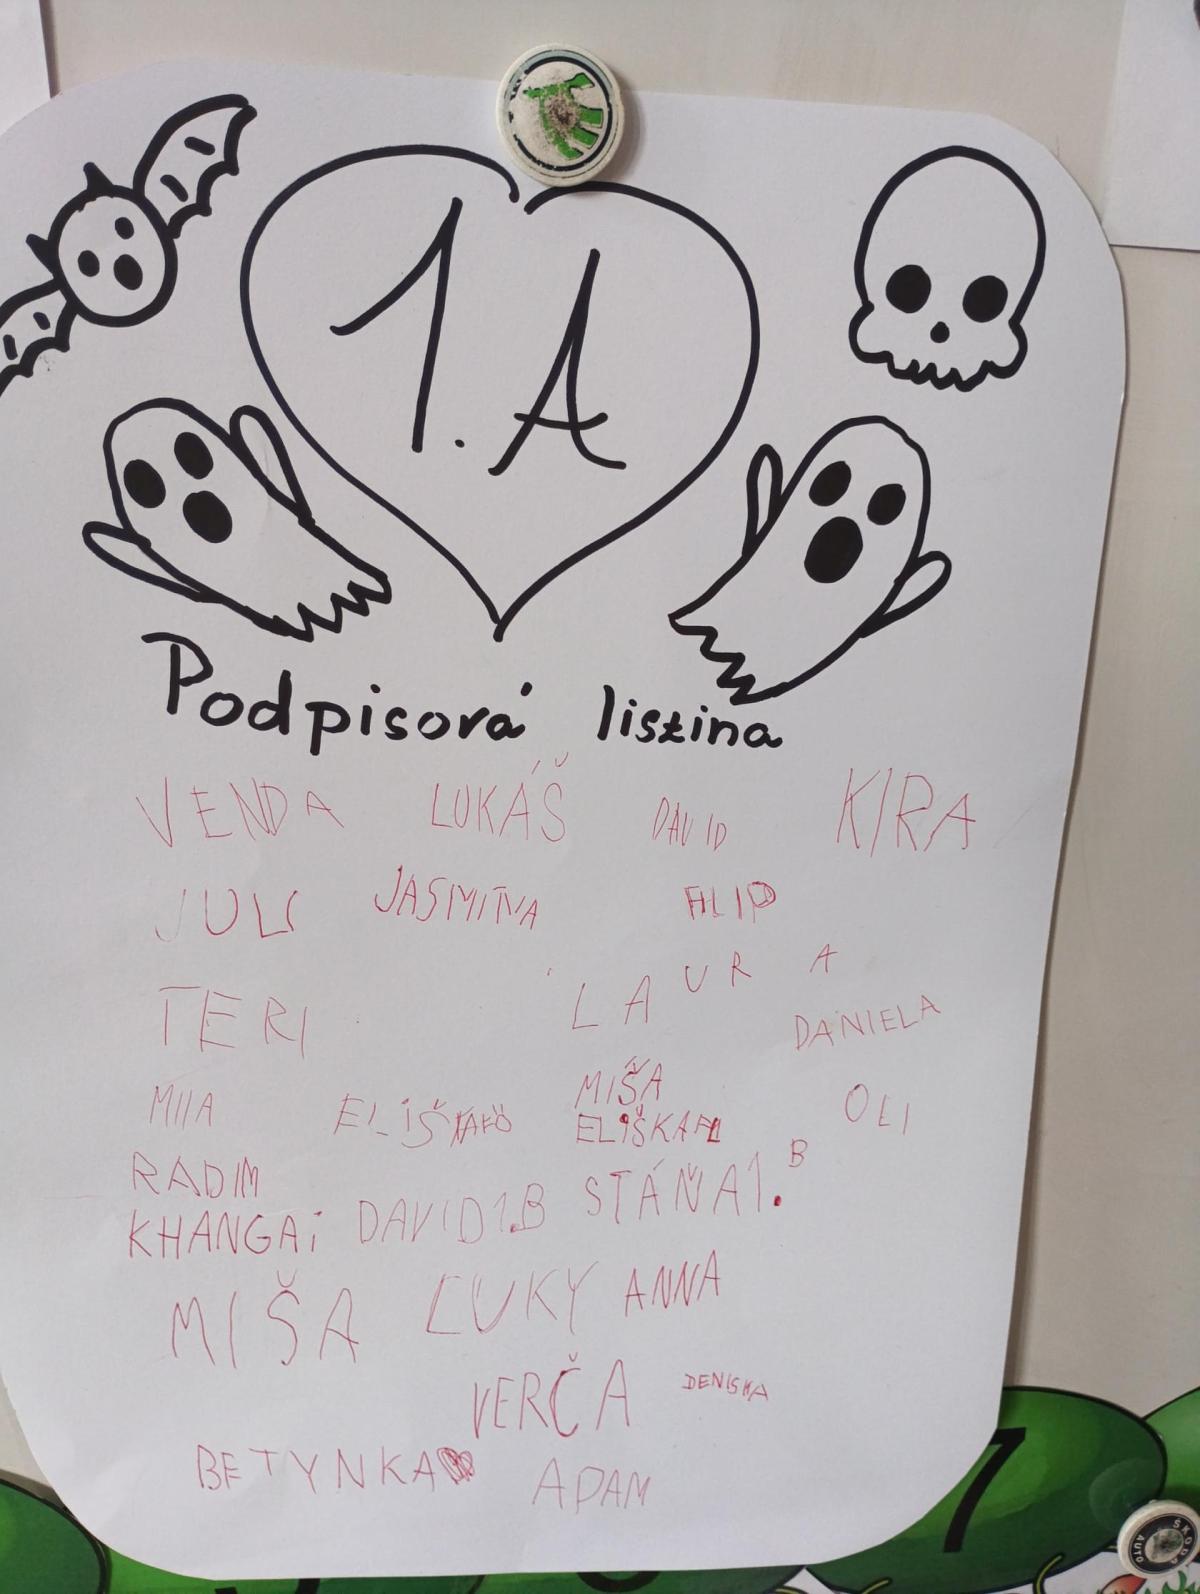 1.A
Podpisová listina
VENDA LUKÁŠ DAVID KIRA
JULI JASMINA FILIP
TERI LAURA
DANIELA
MIIA ELIŠKA MIŠA OLI
ELIŠKA
RADIM
KHANGAi DAVID 1.B STÁŇA 1.B
MIŠA LUKY ANNA
VERČA DENISKA
BETYNKA ADAM
7
ŠKODA
AUTO